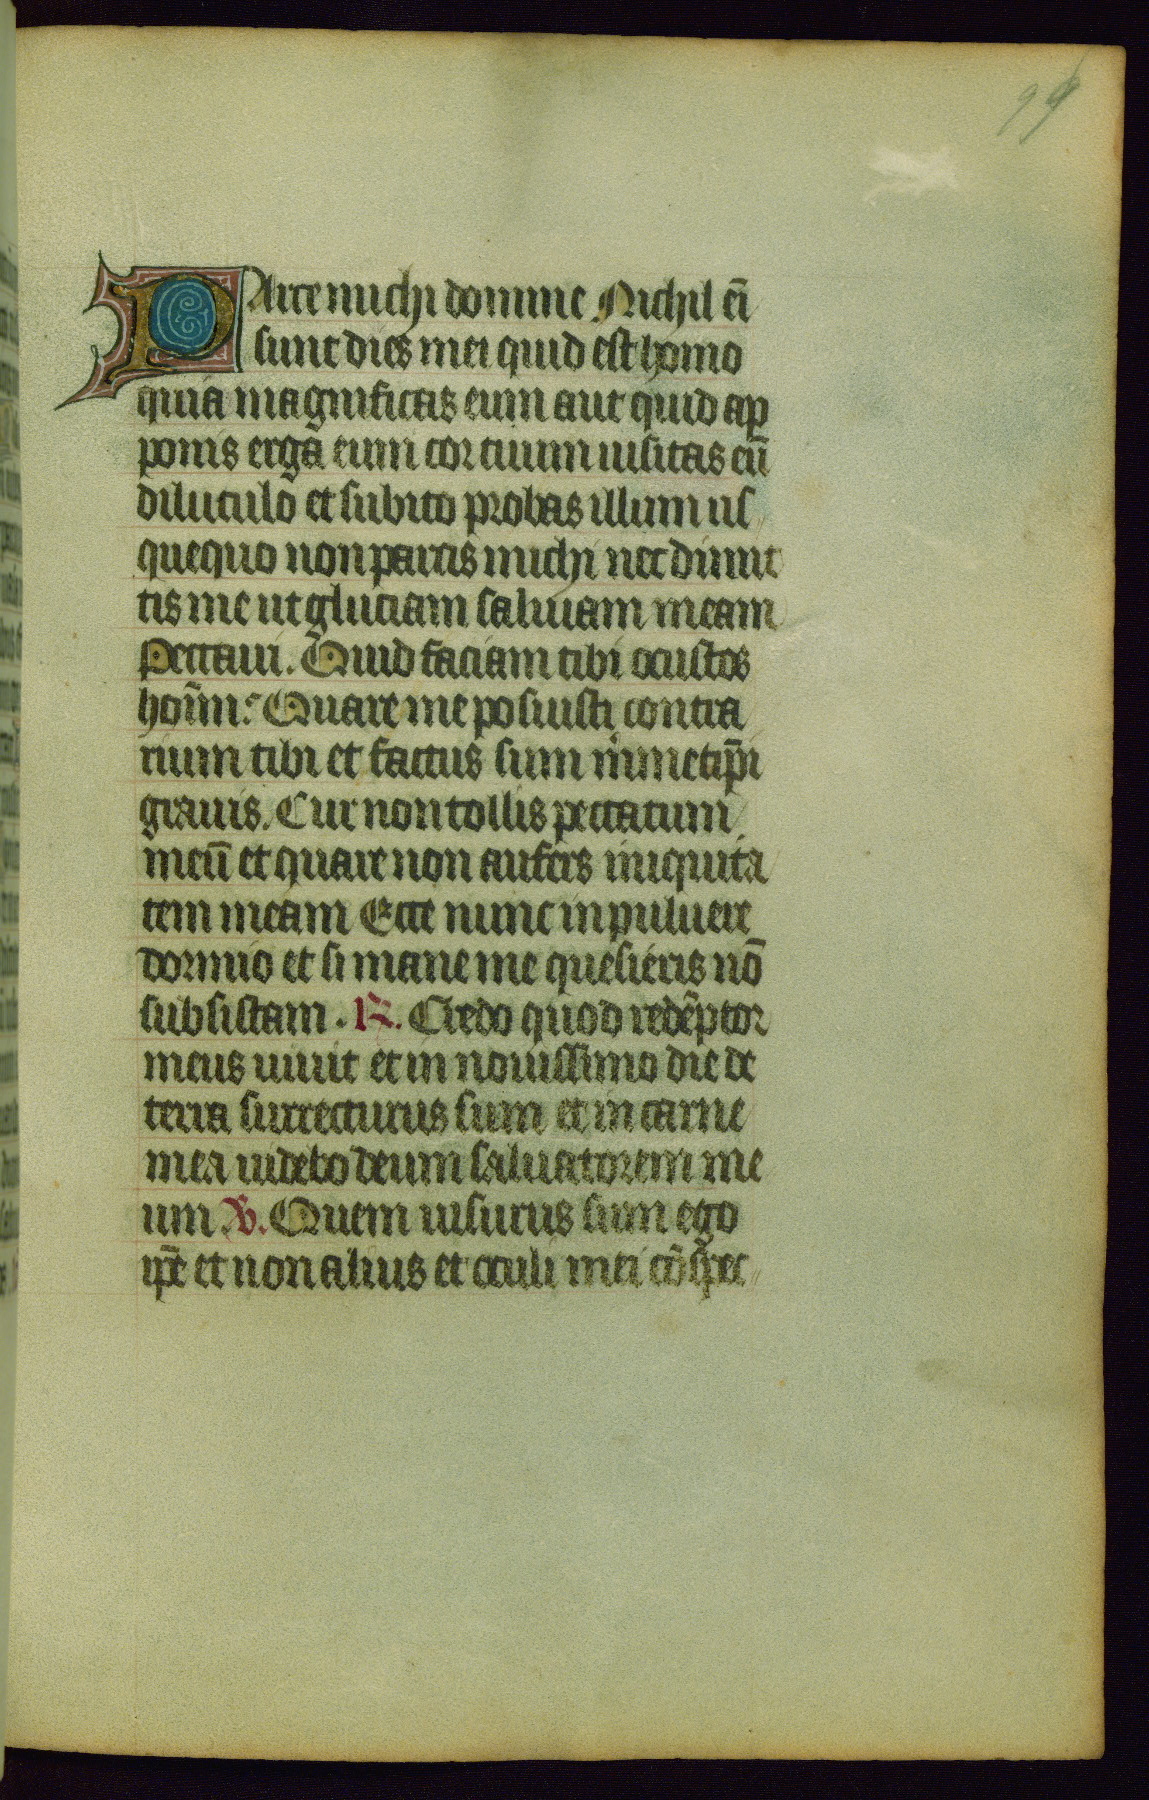 99
Parce michi domine Nichil ei̅
sunt dies mei quid est homo
quia magnificas eum aut quid ap
ponis erga eum cor tuum uisitas eu̅
diluculo et subito probas illum us
quequo non parcis michi nec dimit
tis me ut gluciam saliuam meam
Peccaui. Quid faciam tibi o custos
hoi̅m. Quare me posuisti contra
rium tibi et factus sum mimetip̅i
grauis. Cur non tollis peccatum
meu̅ et quare non aufers iniquita
tem meam Ecce nunc in puluere
dormio et si mane me quesieris no̅
subsistam. ℟. Credo quod rede̅ptor
meus uiuit et in nouissimo die de
terra surrecturus sum et in carne
mea uidebo deum saluatorem me
um ℣. Quem uisurus sum ego
ip̅e et non alius et oculi mei co̅spec